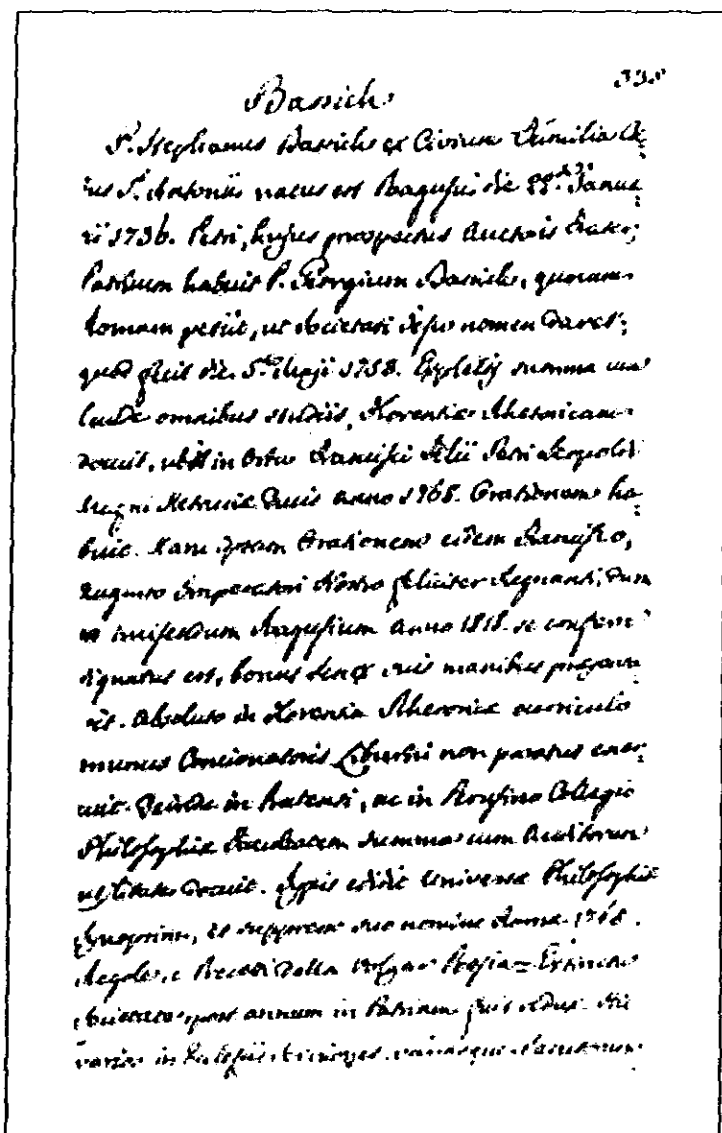 338
Bassich
P. Stephanus Bassich ex Civium Familia
S. Antonii natus est Ragusii die 22 Janua
rii 1736. Petri, hujus prospectus Auctoris Frater;
Patruum habuit P. Georgium Bassich,
Romam petiit, ut Societati Jesu nomen daret;
quod fecit die 5 Maji 1758. Expletis summa cum
laude omnibus studiis, Florentiae Rhetoricam
docuit, in Ortu Francisci Filii Petri Leopoldi
Magni Ducis anno 1768. Orationem ha
buit. Hanc ipsam Orationem eidem Francisco,
Augusto Imperatori Nostro feliciter Regnanti, dum
Ragusium anno 1818. se conferre
dignatus est, bonus senex suis manibus
Absoluto in Florentia Rhetoricae curriculo
munus Concionatoris Liburni non exer
cuit. Deinde in Pratensi, ac in Perusino Collegio
Philosophiae Facultatem summa cum Auditorum
utilitate docuit. Typis edidit Universae Philosophiae
Synopsim, et suppresso suo nomine Romae
Regole, e Precetti della Volgar Poesia = Extincta
Societate post annum in Patriam fuit redux.
varios in